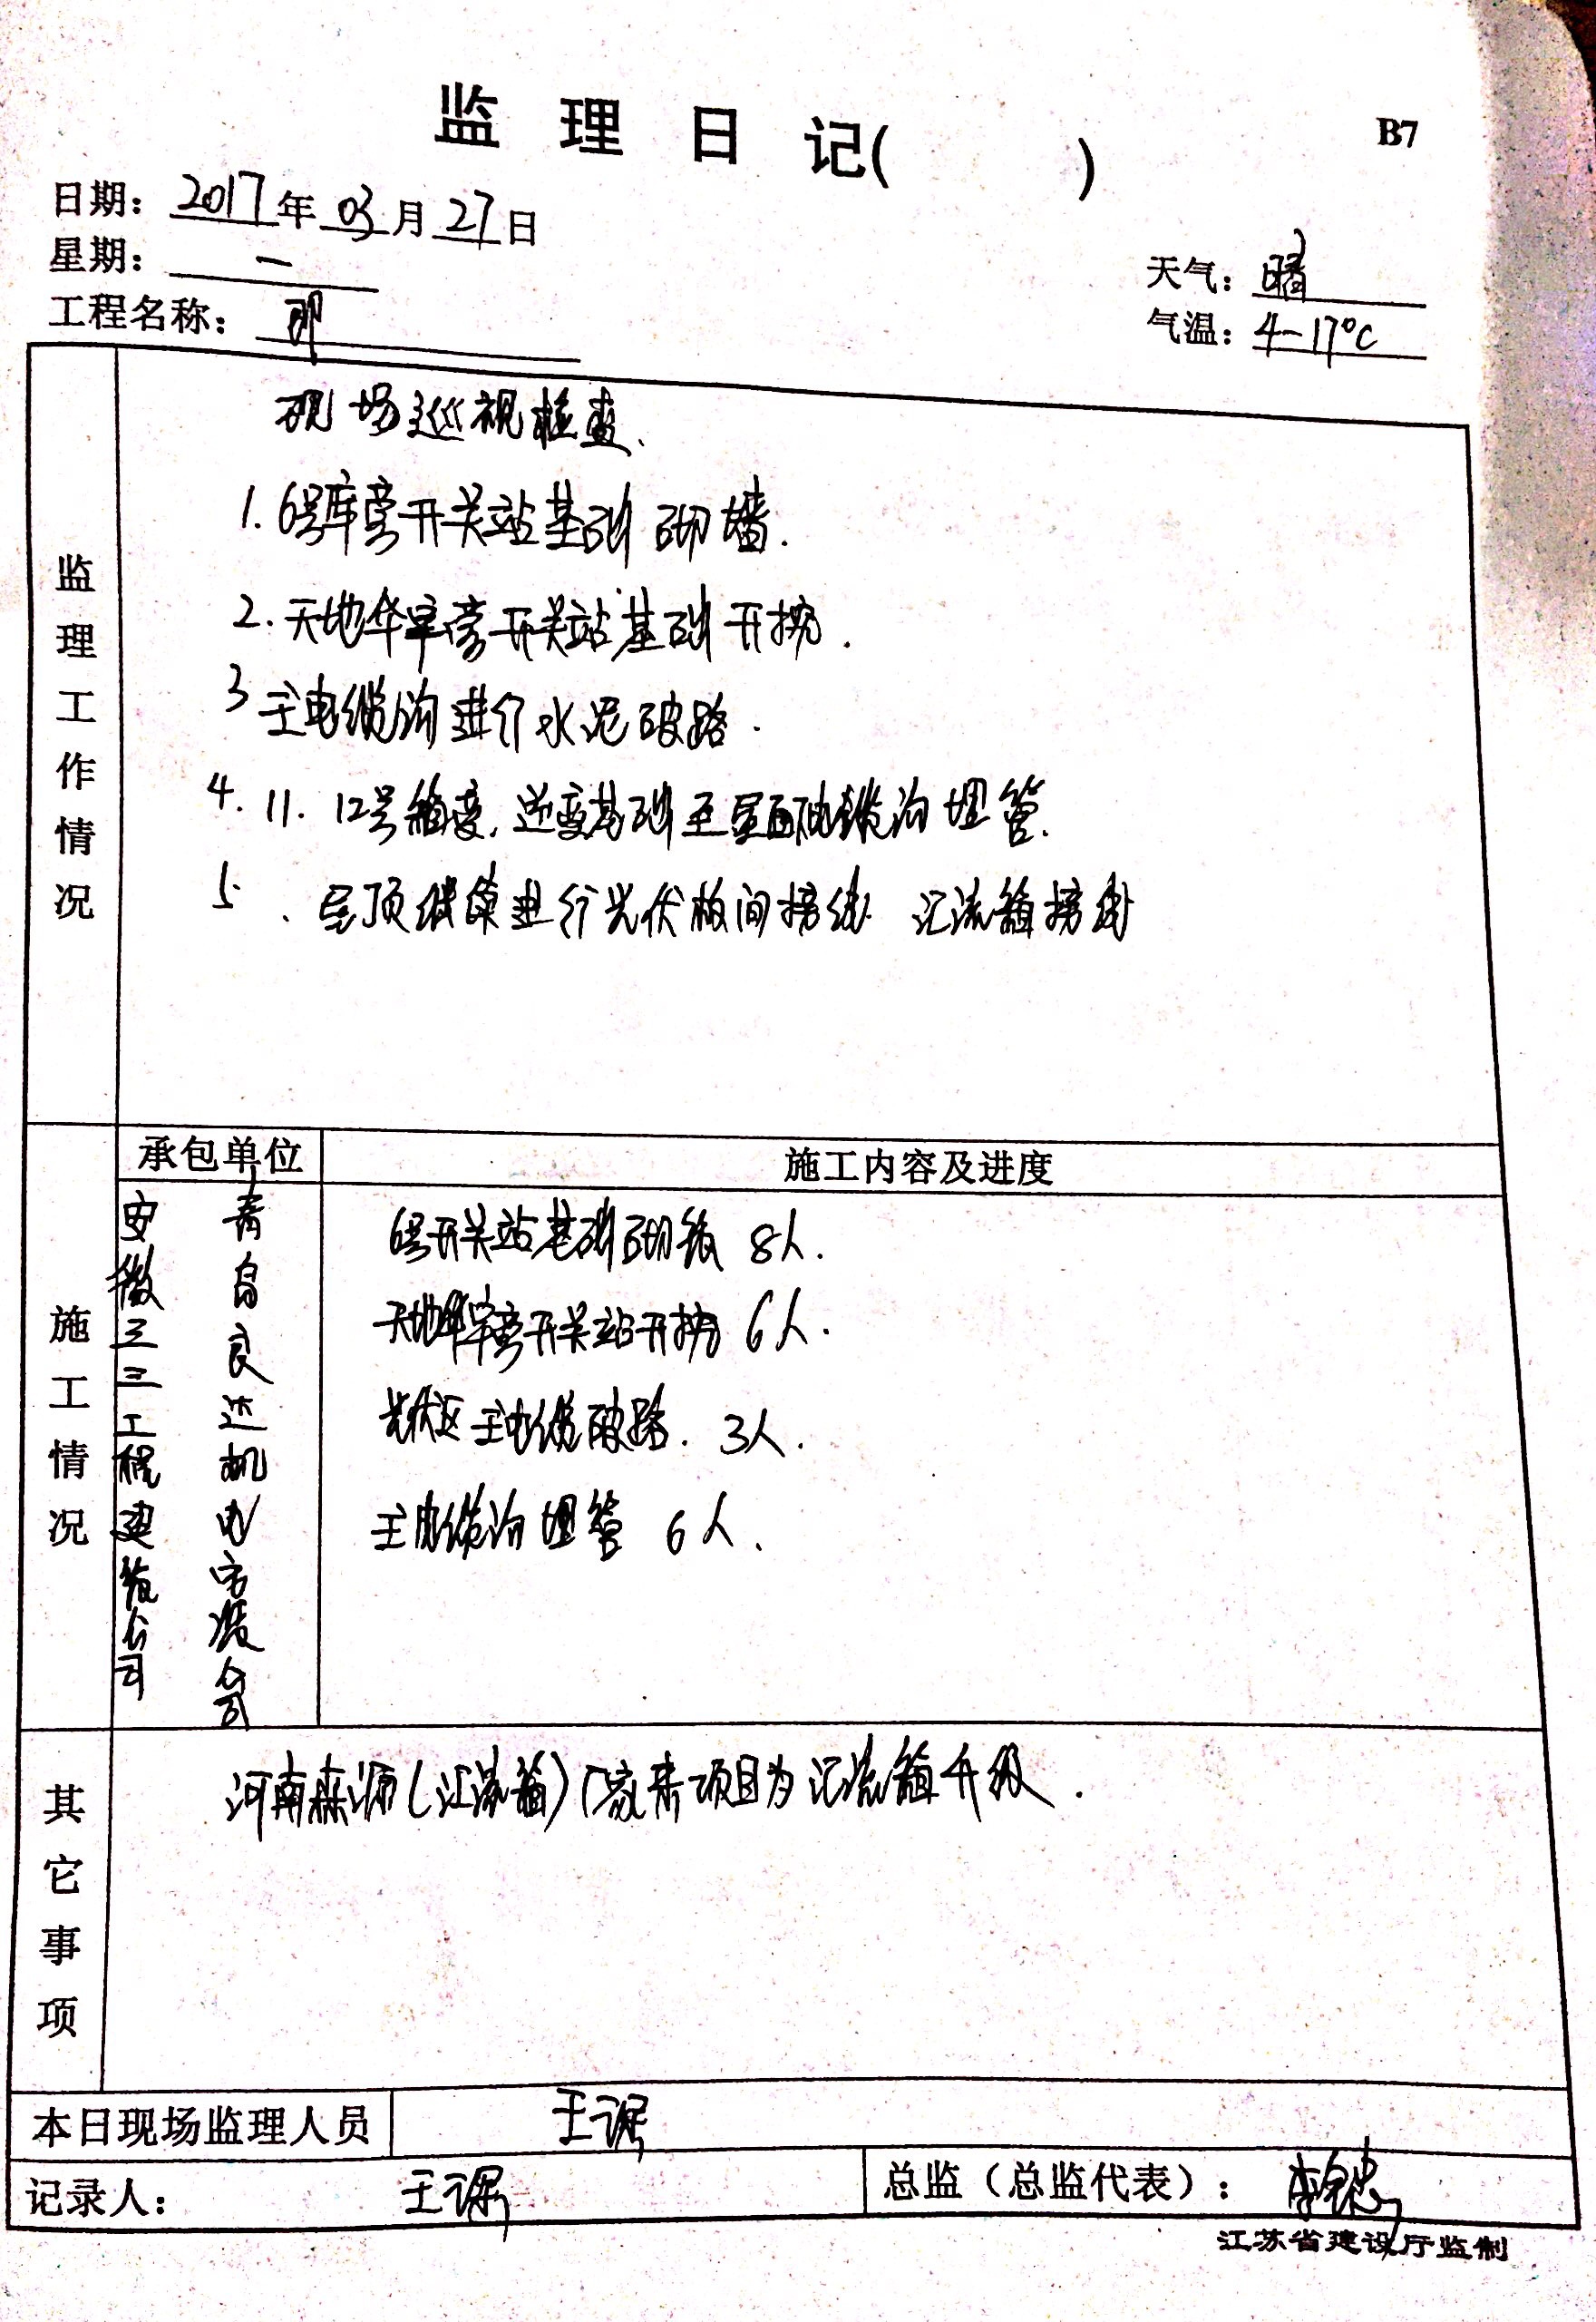 监理日记(　　)
B7
日期：2017年03月27日
星期：一
天气：晴
工程名称：
气温：4-17℃
监理工作情况
现场巡视检查、
1.6号库旁开关站基础砌墙.
2.天地华宇旁开关站基础开挖.
3 主电缆沟进行水泥破路.
4.11.12号箱变,逆变基础至屋面电缆沟埋管.
5、屋顶继续进行光伏板间接线 汇流箱接线
施工情况
承包单位
施工内容及进度
安徽三三工程建筑公司
青岛良达机电安装公司
6号开关站基础砌筑 8人.
天地华宇旁开关站开挖 6人.
光伏区主电缆破路. 3人.
主电缆沟埋管 6人.
其它事项
河南森源(汇流箱)厂家来项目为汇流箱升级.
本日现场监理人员
王
记录人：王
总监（总监代表）：李
江苏省建设厅监制